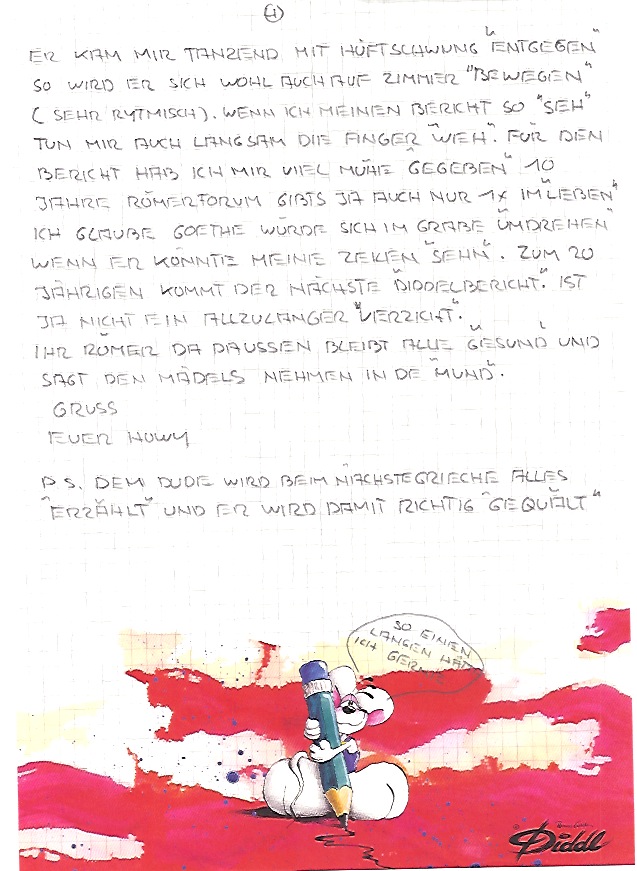 4
ER KAM MIR TANZEND MIT HÜFTSCHWUNG "ENTGEGEN"
SO WIRD ER SICH WOHL AUCH AUF ZIMMER "BEWEGEN"
( SEHR RYTMISCH). WENN ICH MEINEN BERICHT SO "SEH"
TUN MIR AUCH LANGSAM DIE FINGER "WEH". FÜR DEN
BERICHT HAB ICH MIR VIEL MÜHE "GEGEBEN" 10
JAHRE RÖMERFORUM GIBTS JA AUCH NUR 1X IM "LIEBEN"
ICH GLAUBE GOETHE WÜRDE SICH IM GRABE "UMDREHEN"
WENN ER KÖNNTE MEINE ZEILEN "SEHN". ZUM 20
JÄHRIGEN KOMMT DER NÄCHSTE "DIDDELBERICHT". IST
JA NICHT EIN ALLZULANGER "VERZICHT".
IHR RÖMER DA DAUSSEN BLEIBT ALLE "GESUND" UND
SAGT DEN MÄDELS NEHMEN IN DE "MUND".
GRUSS
EUER HOWY
P.S. DEM DUDE WIRD BEIM NÄCHSTEGRIECHE ALLES
"ERZÄHLT" UND ER WIRD DAMIT RICHTIG "GEQUÄLT"
SO EINEN
LANGEN HÄTT
ICH GERNE
Diddl